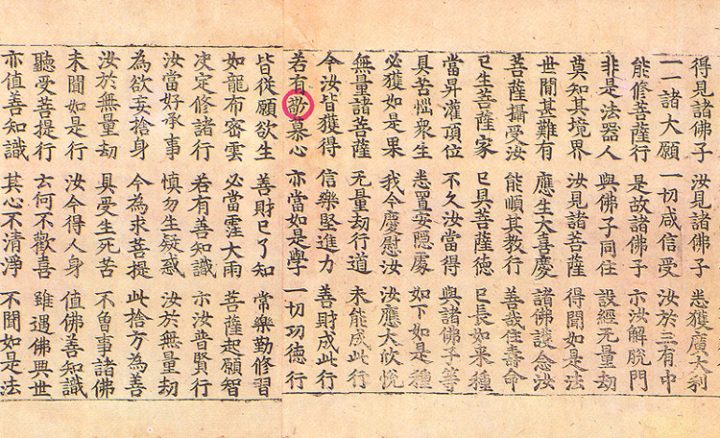 得見諸佛子 汝見諸佛子 悉獲廣大利
一一諸大願 一切咸信受 汝於三有中
能修菩薩行 是故諸佛子 示汝解脫門
非是法器人 與佛子同住 設經无量劫
莫知其境界 汝見諸菩薩 得聞如是法
世間甚難有 應生大喜慶 諸佛護念汝
菩薩攝受汝 能順其教行 善哉住壽命
已生菩薩家 已具菩薩德 已長如來種
當昇灌頂位 不久汝當得 與諸佛子等
具苦惱衆生 悉置安隱處 如下如是種
必獲如是果 我今慶慰汝 汝應大欣悅
無量諸菩薩 无量劫行道 未能成此行
今汝皆獲得 信樂堅進力 善財成此行
若有敬慕心 亦當如是學 一切功德行
皆從願欲生 善財已了知 常樂勤修習
如龍布密雲 必當霔大雨 菩薩起願智
决定修諸行 若有善知識 示汝普賢行
汝當好承事 慎勿生疑惑 汝於無量劫
為欲妄捨身 今為求菩提 此捨方為善
汝於無量劫 具受生死苦 不曾事諸佛
未聞如是行 汝今得人身 值佛善知識
聽受菩提行 云何不歡喜 雖遇佛興世
亦值善知識 其心不清淨 不聞如是法